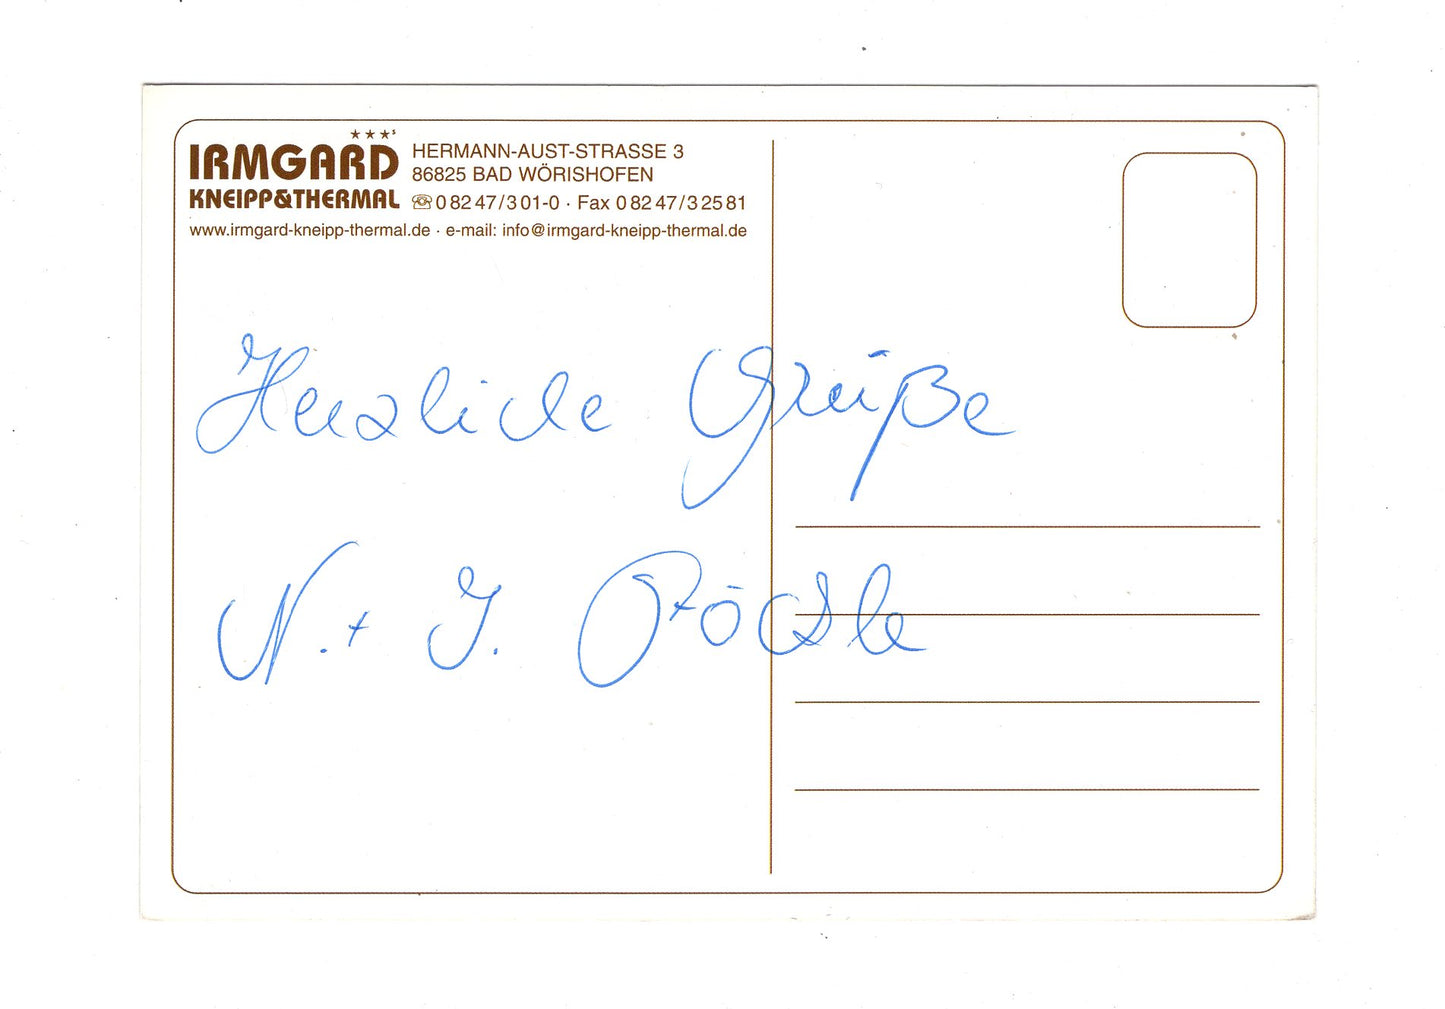 ★★★ˢ
IRMGARD
KNEIPP&THERMAL
HERMANN-AUST-STRASSE 3
86825 BAD WÖRISHOFEN
☏ 0 82 47/3 01-0 · Fax 0 82 47/3 25 81
www.irmgard-kneipp-thermal.de · e-mail: info@irmgard-kneipp-thermal.de
Herzliche Grüße
N. + J.